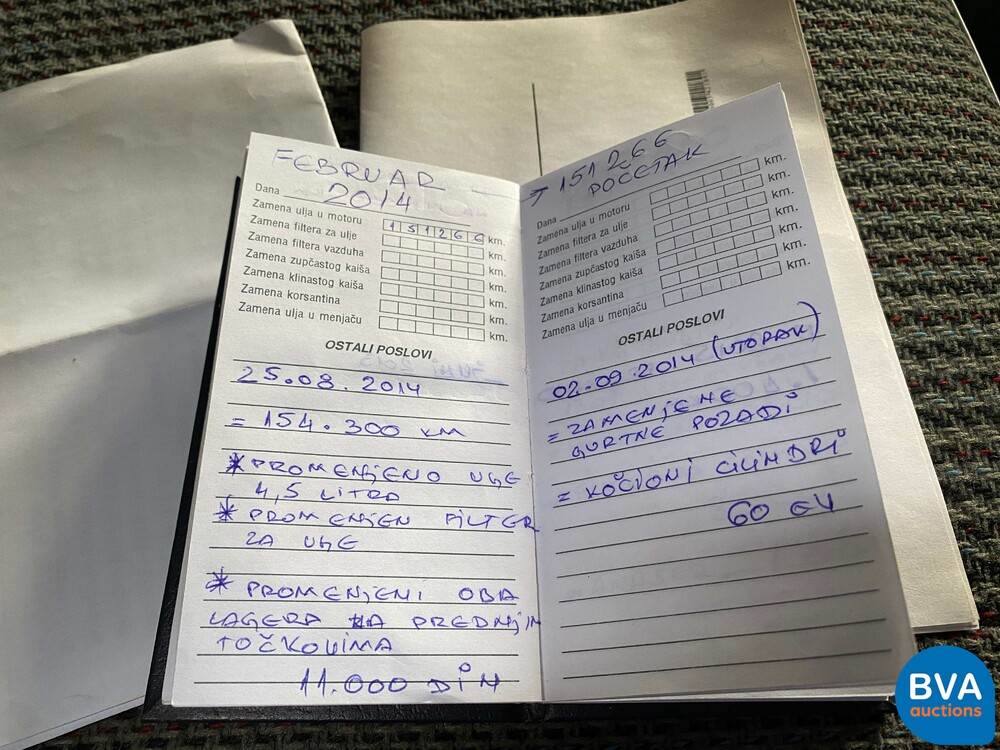 FEBRUAR
2014
Dana
Zamena ulja u motoru 151266 km.
Zamena filtera za ulje km.
Zamena filtera vazduha km.
Zamena zupčastog kaiša km.
Zamena klinastog kaiša km.
Zamena korsantina km.
Zamena ulja u menjaču km.
OSTALI POSLOVI
25.08.2014
= 154.300 KM
* PROMENJENO ULJE
4,5 LITRA
* PROMENJEN FILTER
ZA ULJE
* PROMENJENI OBA
LAGERA NA PREDNJIM
TOČKOVIMA
11.000 DIN
→ 151266
POČETAK
Dana
Zamena ulja u motoru km.
Zamena filtera za ulje km.
Zamena filtera vazduha km.
Zamena zupčastog kaiša km.
Zamena klinastog kaiša km.
Zamena korsantina km.
Zamena ulja u menjaču km.
OSTALI POSLOVI
02.09.2014 (UTORAK)
= ZAMENJENE
GURTNE POZADI
= KOČIONI CILINDRI
60 EU
BVA
auctions